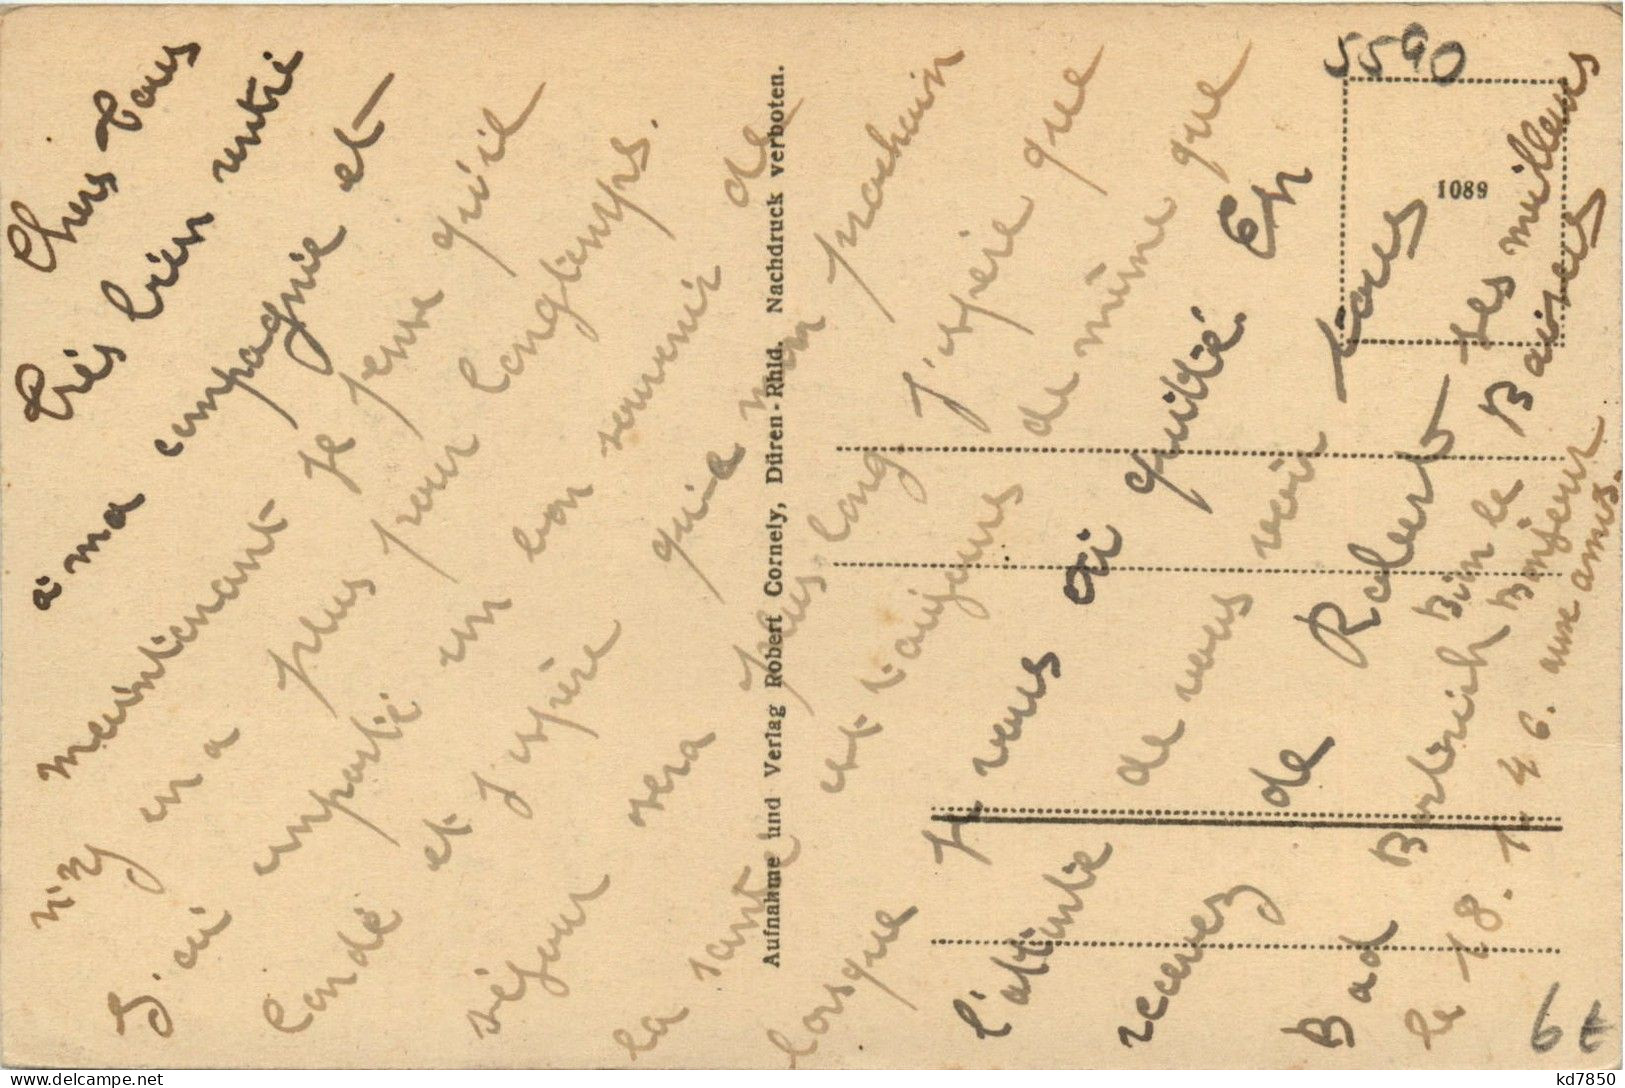 Chers Tous
Très bien rentré
à ma compagnie et
maintenant je pense qu'il
n'y en a plus pour longtemps.
J'ai emporté un bon souvenir de
Condé et j'espère que mon prochain
séjour sera plus long. J'espère que
la santé est toujours de même que
lorsque je vous ai quitté. En
l'attente de vous revoir tous
recevez de Robert ses meilleurs
Baisers
Bad Bertrich
le 18.1.46.
Bien le
Bonjour
aux amis.
Aufnahme und Verlag Robert Cornely, Düren-Rhld. Nachdruck verboten.
1089
5590
6
kd7850